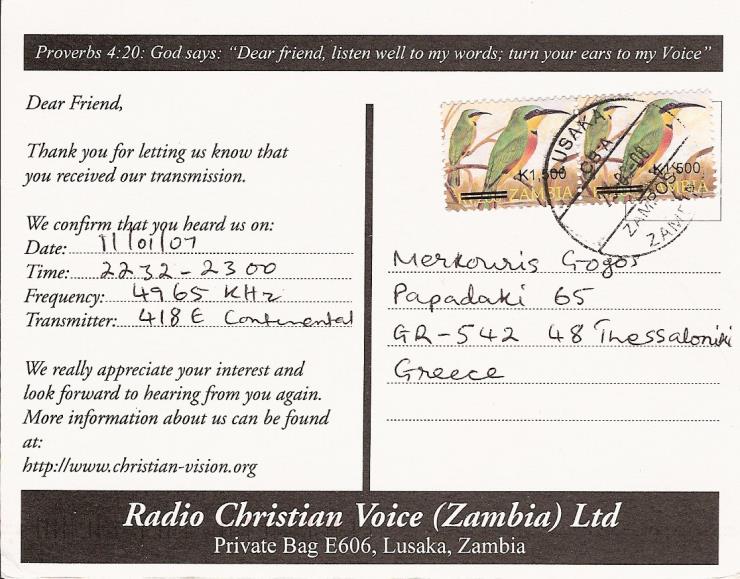 Proverbs 4:20: God says: “Dear friend, listen well to my words; turn your ears to my Voice”
Dear Friend,
Thank you for letting us know that
you received our transmission.
We confirm that you heard us on:
Date: 11/01/07
Time: 2232 - 2300
Frequency: 4965 KHz
Transmitter: 418E Continental
We really appreciate your interest and
look forward to hearing from you again.
More information about us can be found
at:
http://www.christian-vision.org
K1,500
ZAMBIA
K1,500
ZAMBIA
LUSAKA
ZAMPOST
Merkouris Gogos
Papadaki 65
GR-542 48 Thessaloniki
Greece
Radio Christian Voice (Zambia) Ltd
Private Bag E606, Lusaka, Zambia